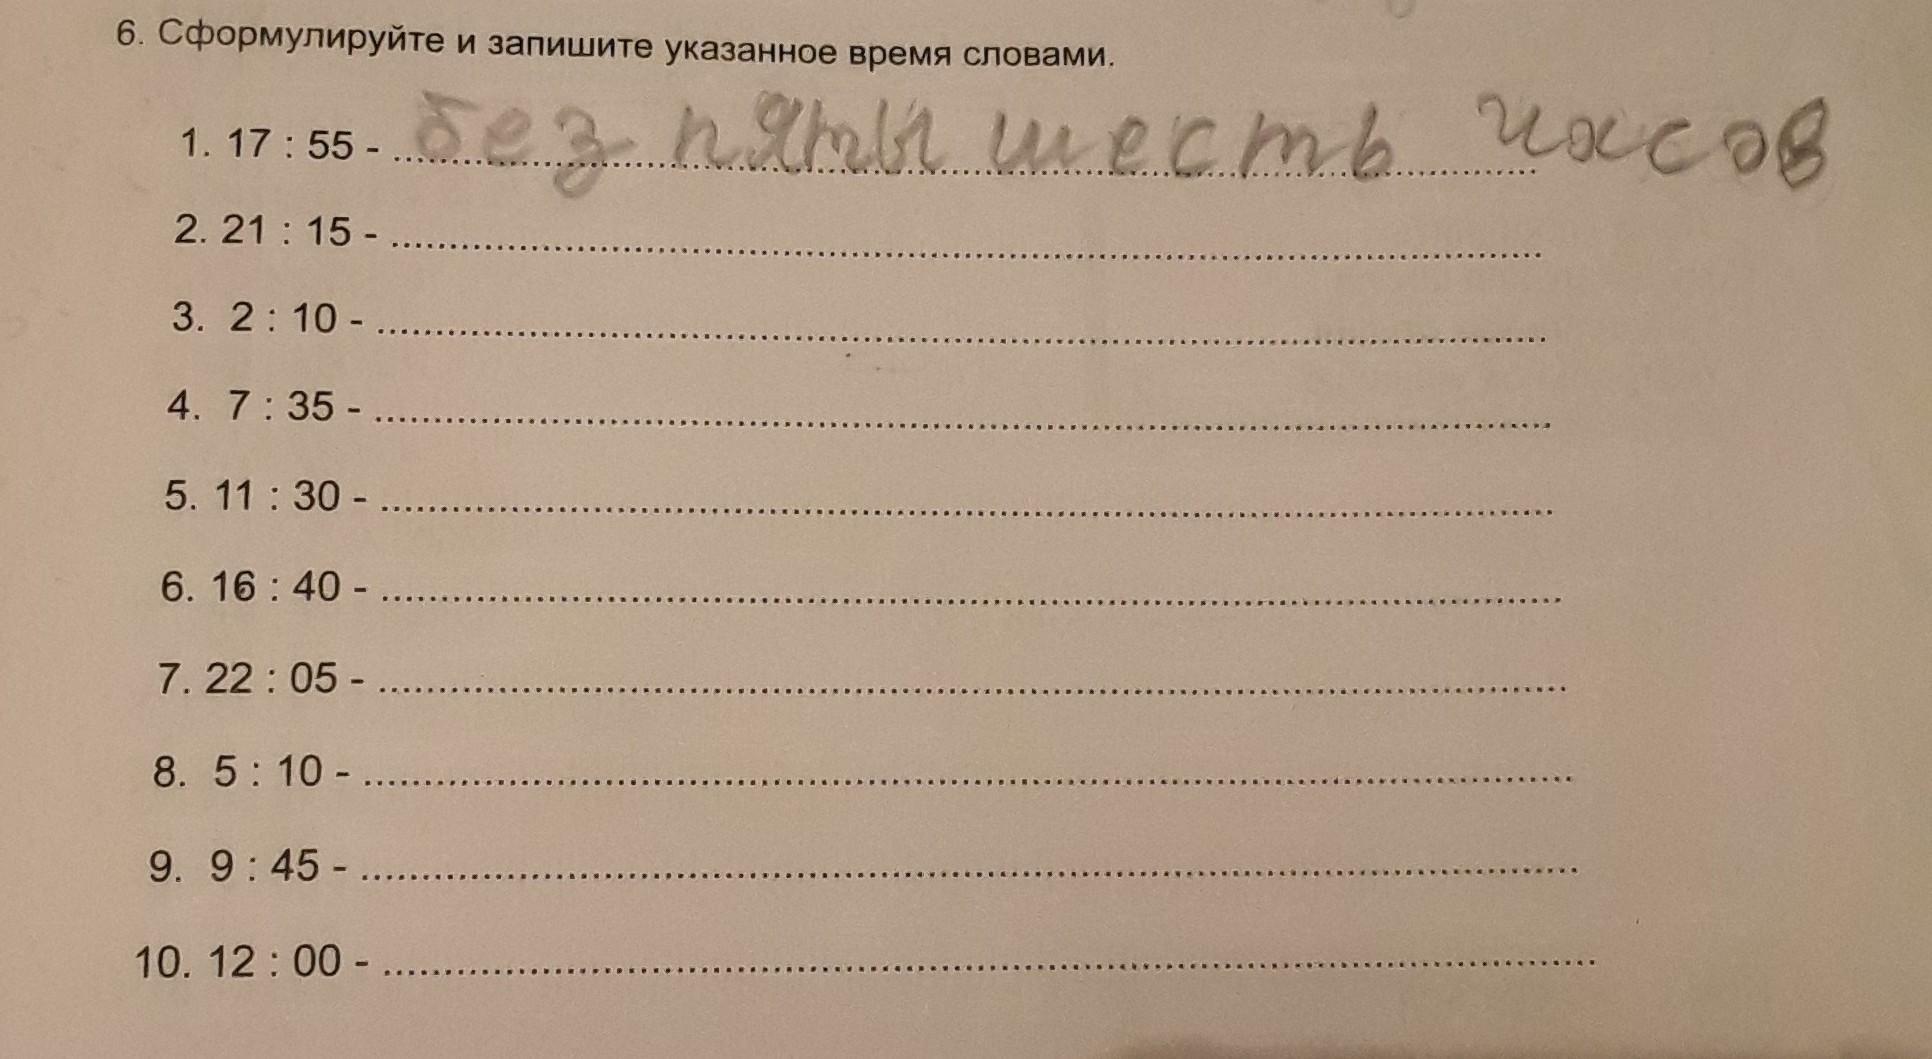 6. Сформулируйте и запишите указанное время словами.
1. 17 : 55 - без пяты шесть часов
2. 21 : 15 - ..........
3. 2 : 10 - ..........
4. 7 : 35 - ..........
5. 11 : 30 - ..........
6. 16 : 40 - ..........
7. 22 : 05 - ..........
8. 5 : 10 - ..........
9. 9 : 45 - ..........
10. 12 : 00 - ..........